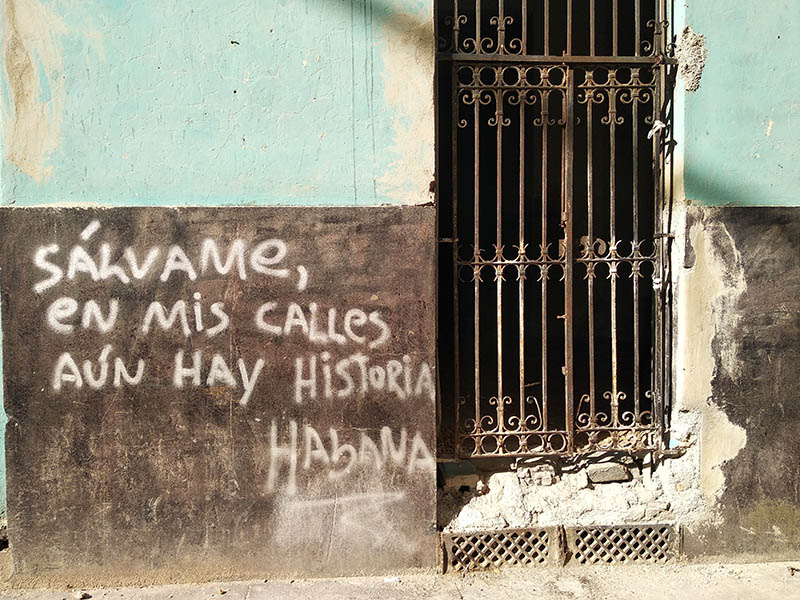 SÁLVAME,
EN MIS CALLES
AÚN HAY HISTORIA
HABANA